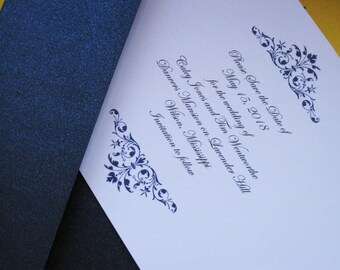 Please Save the Date of
May 15, 2018
for the wedding of
Caley Jones and Tim Wentworthe
Dancers Mansion on Lavender Hill
Wilson, Mississippi
Invitation to follow